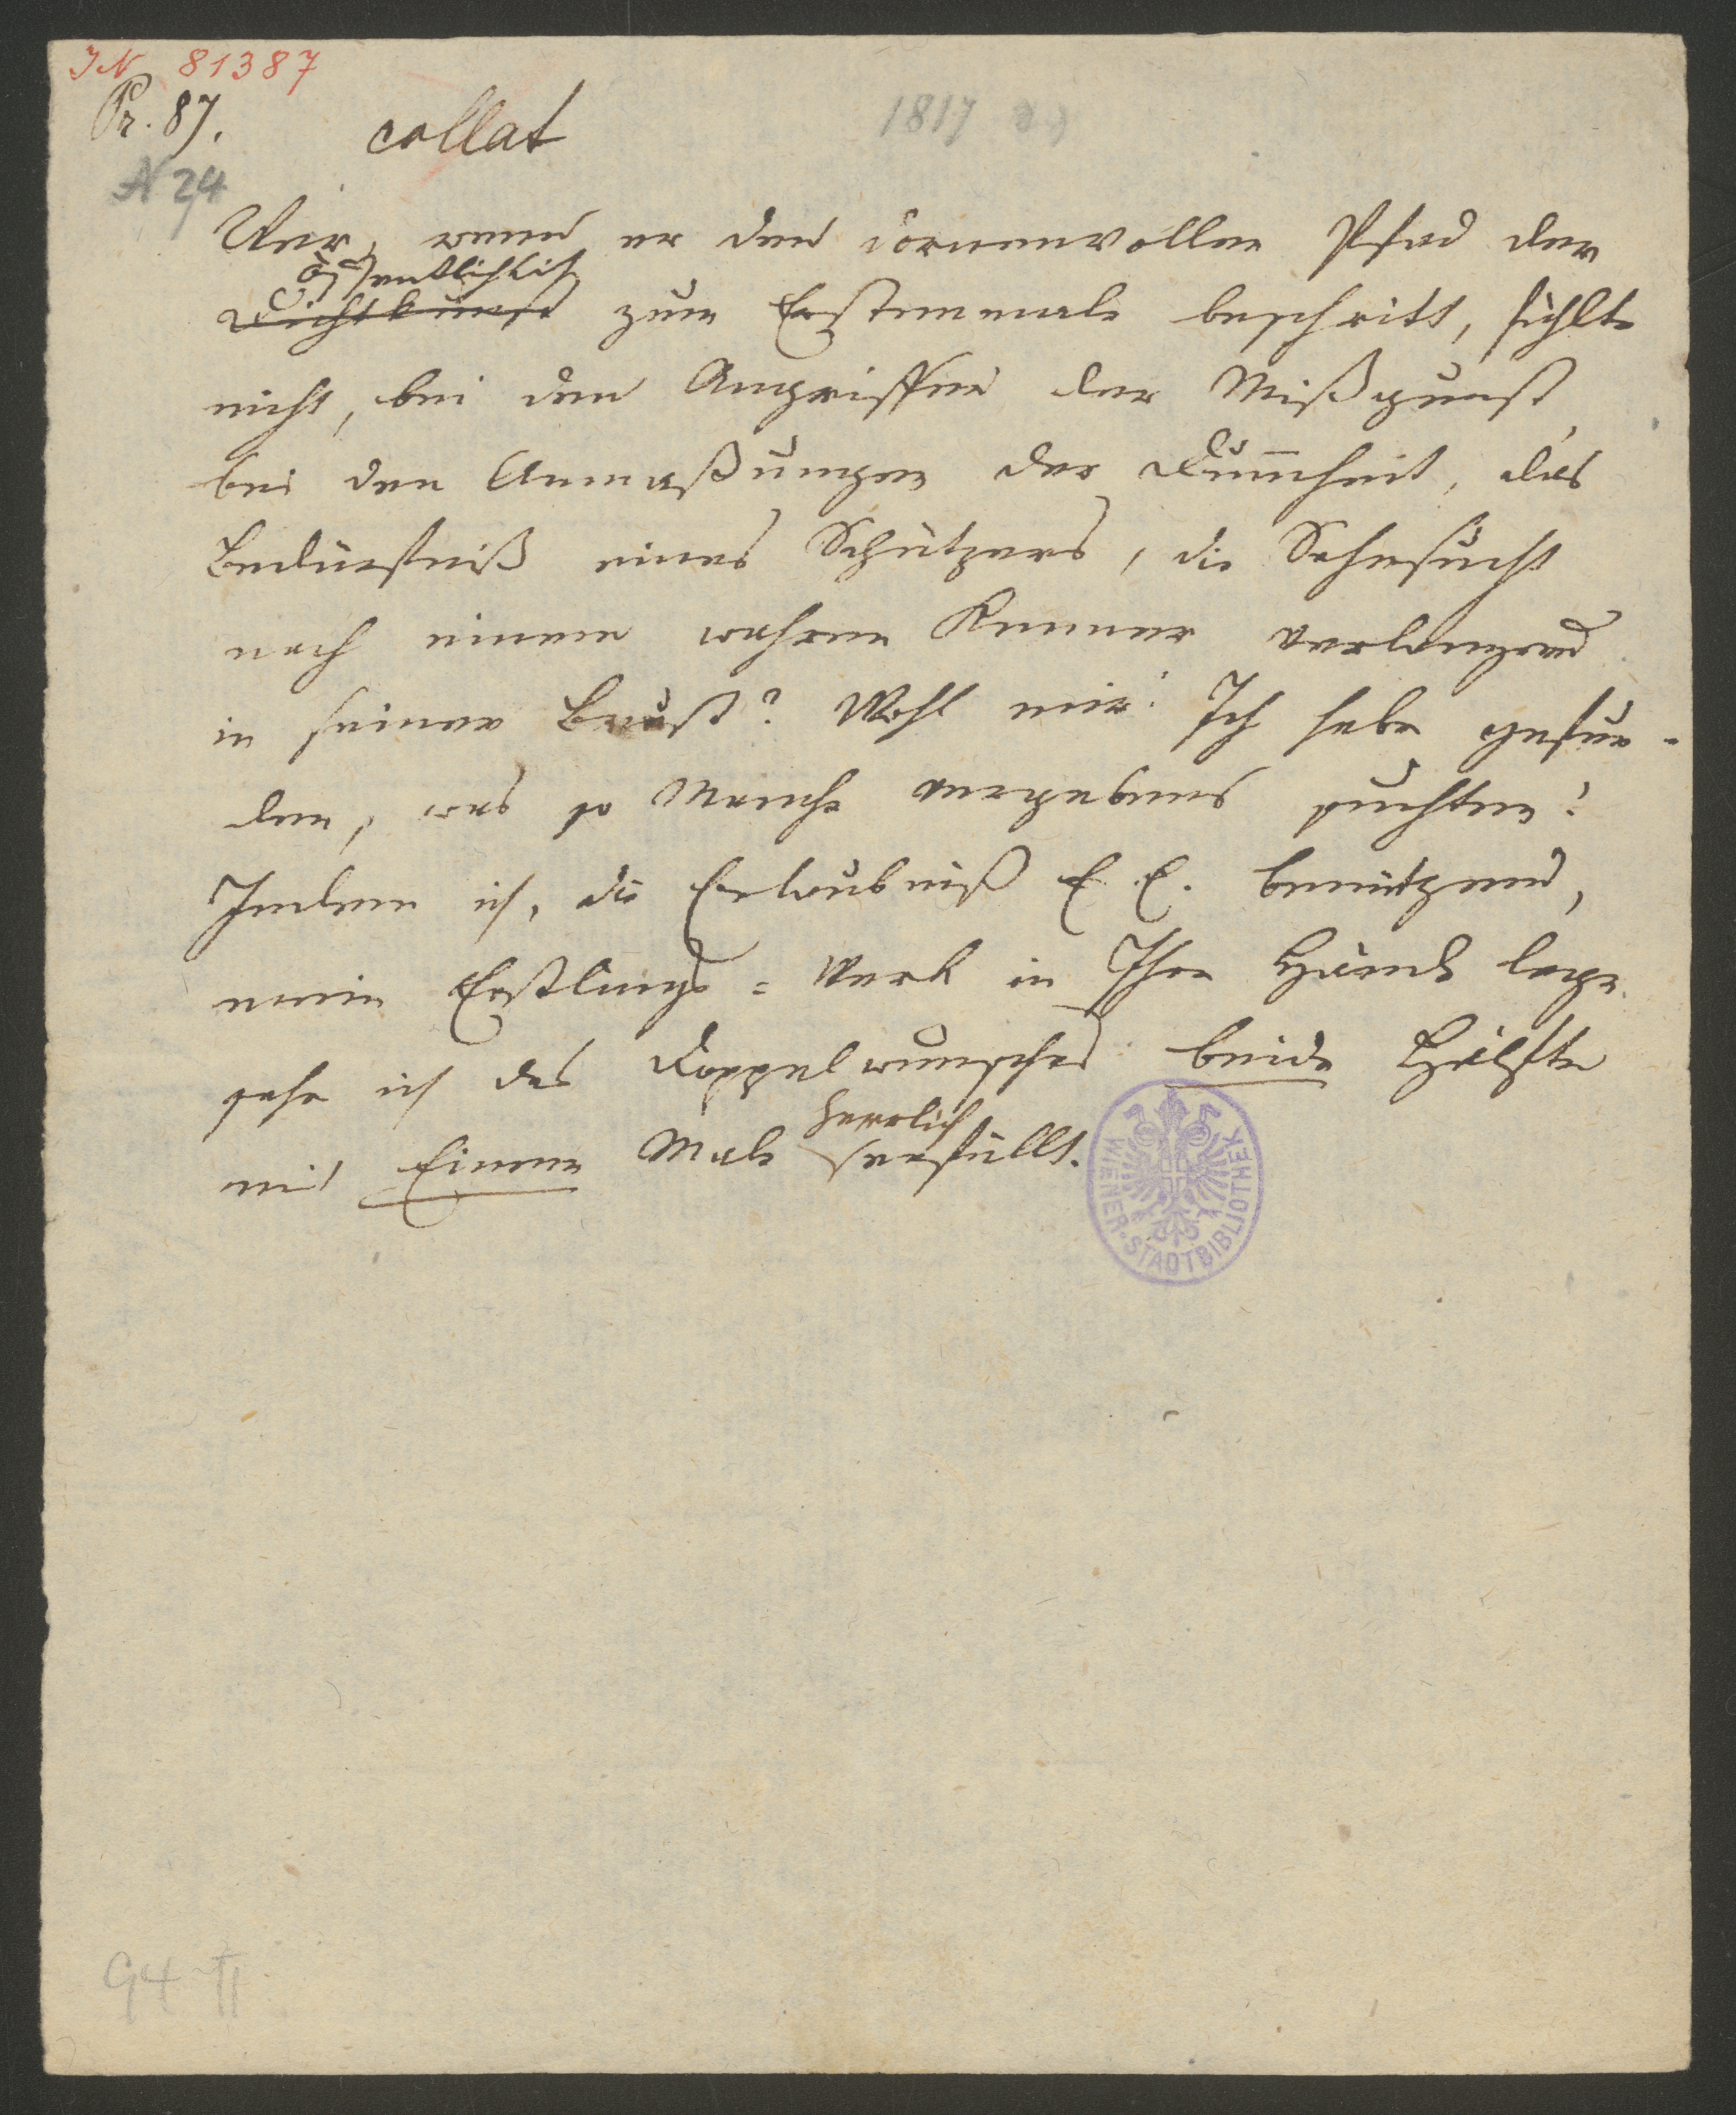 IN 81387
Pr. 87.
collat
1817
N 24
Wer, wenn er den dornenvollen Pfad der
Öffentlichkeit
Dichtkunst zum Erstenmale beschritt, fühlte
nicht, bei den Angriffen der Mißgunst,
bei den Anmaßungen der Dum̅heit, das
Bedürfniß eines Schützers, die Sehnsucht
nach einem wahren Kenner verlangend
in seiner Brust? Wohl mir! Ich habe gefun-
den, was so Manche vergebens suchten!
Indem ich, die Erlaubniß E. E. benützend,
mein Erstlings=Werk in Ihre Hände lege
sehe ich des Doppelwunsches beide Hälften
herrlich
mit Einem Male erfüllt.
WIENER·STADTBIBLIOTHEK
G4 II